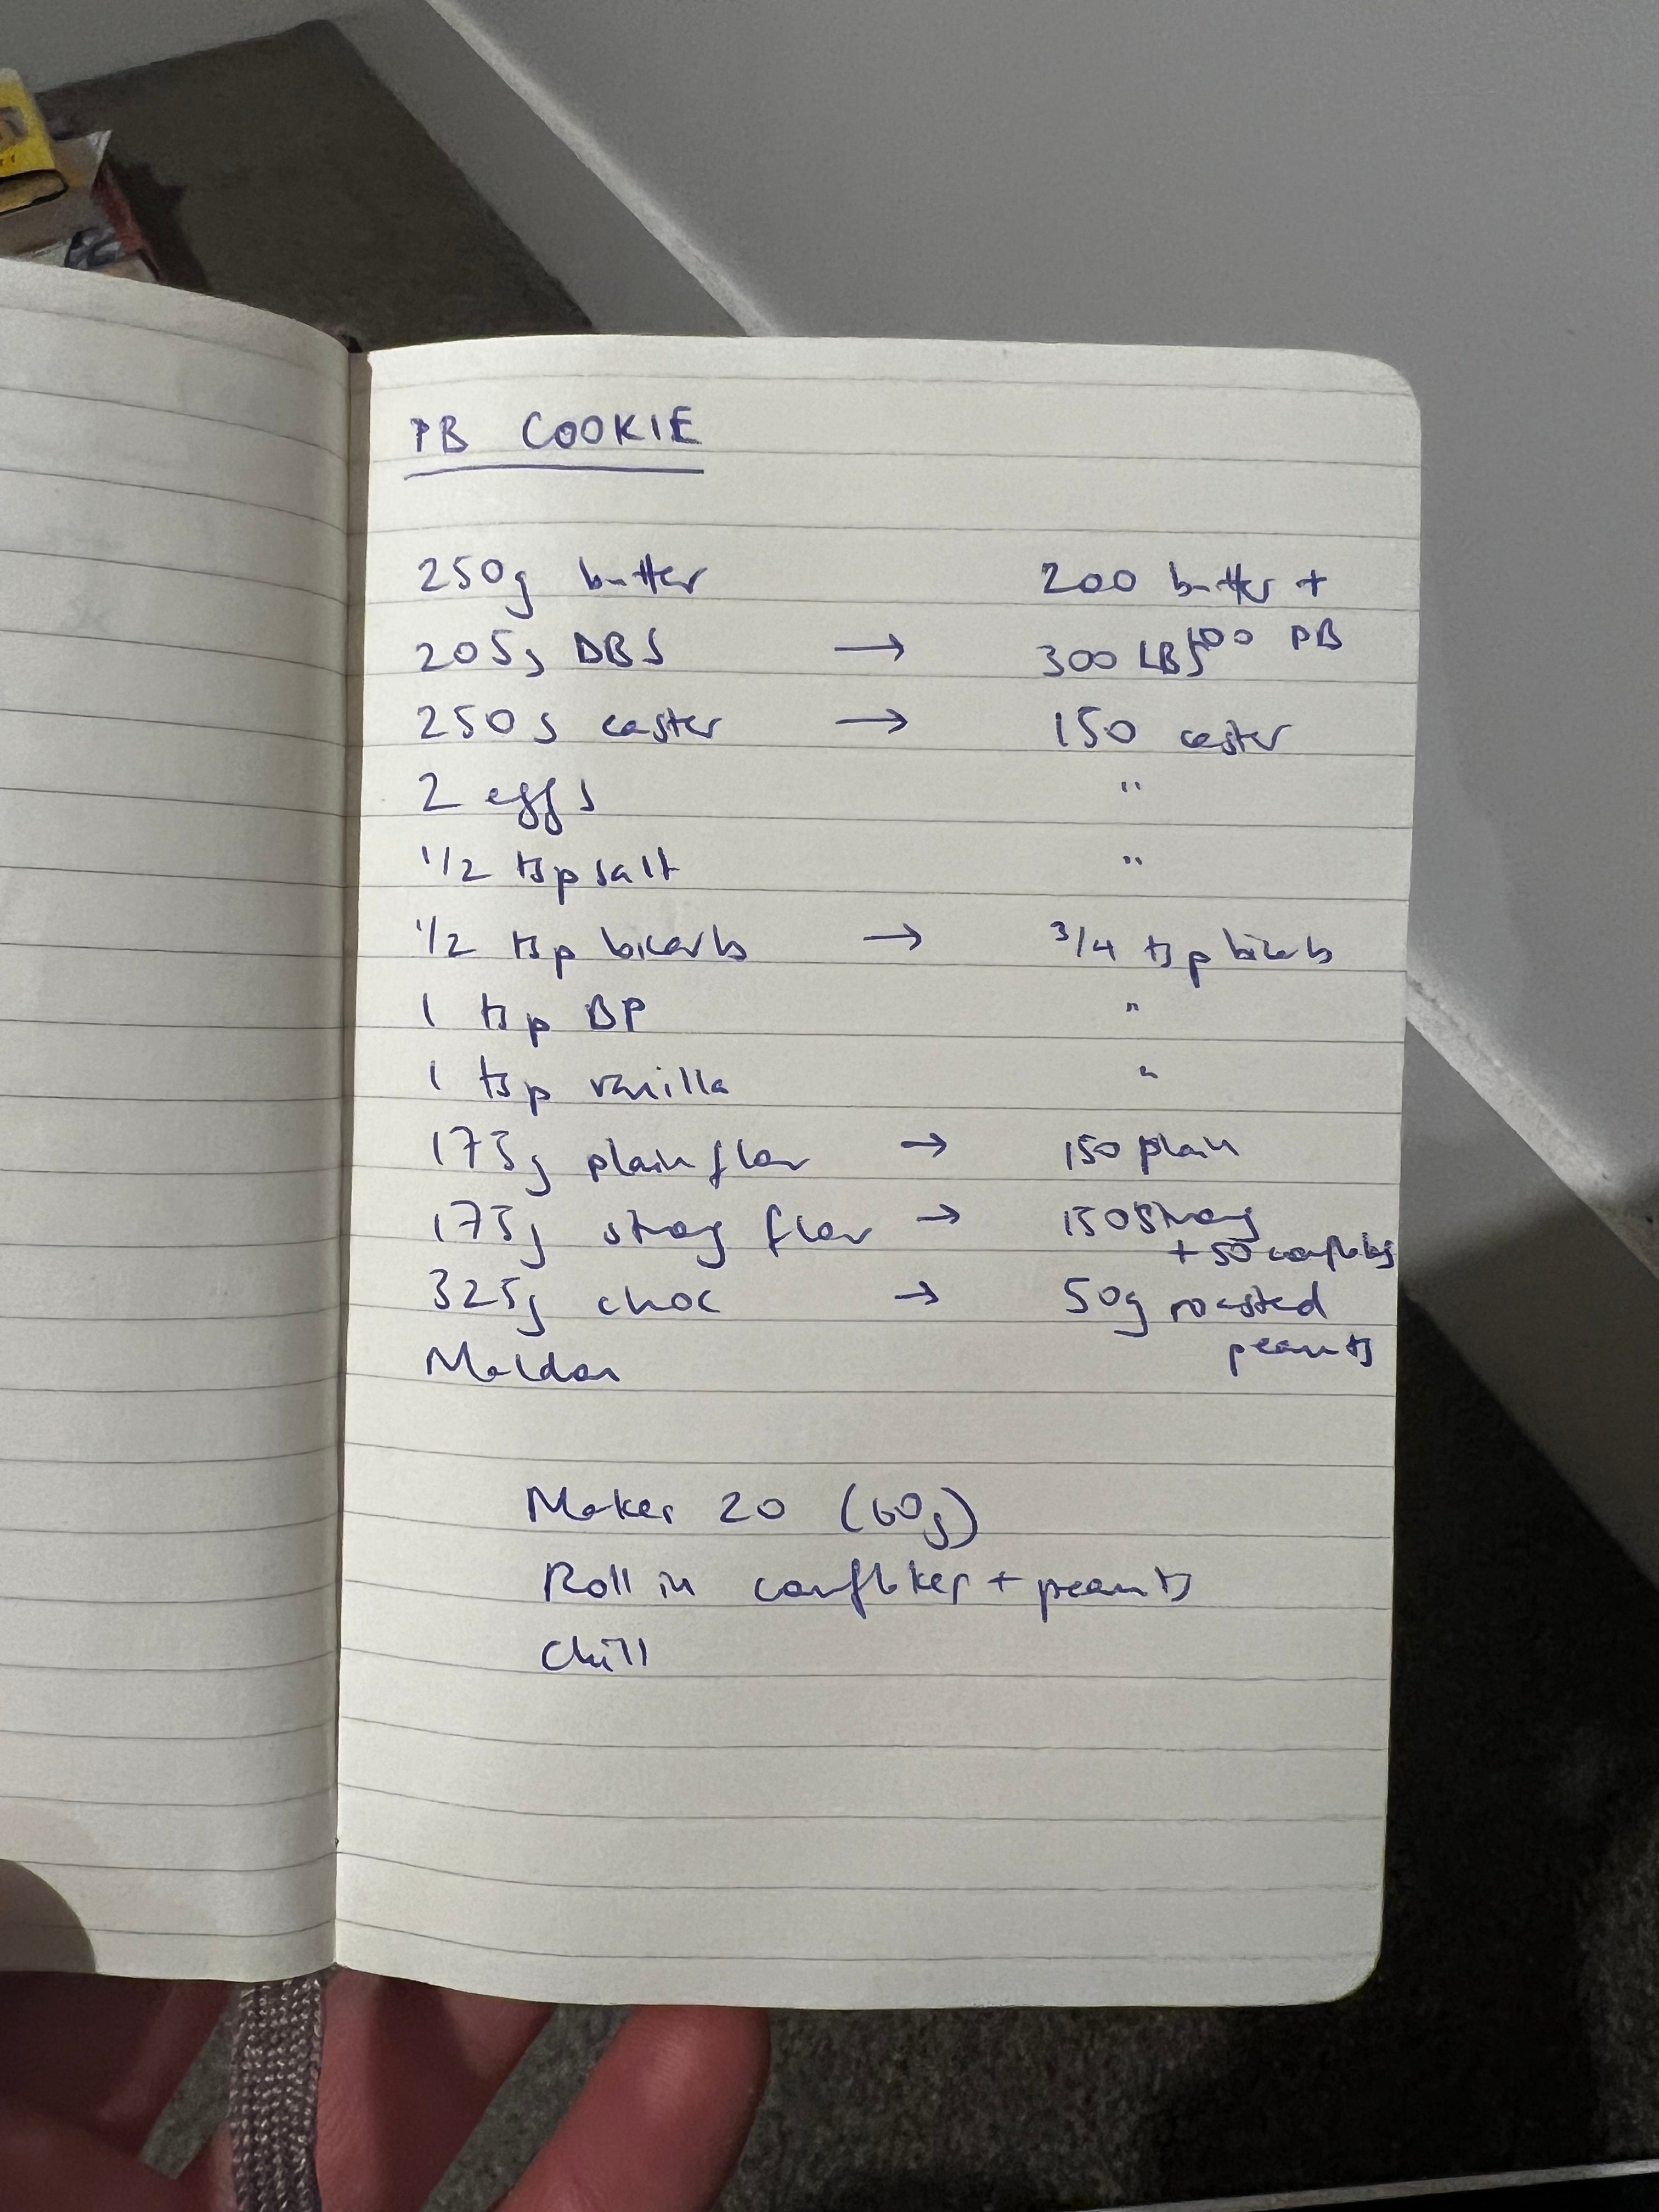 PB COOKIE
250g butter 200 butter +
100 PB
205g DBS → 300 LBS
250g caster → 150 caster
2 eggs "
1/2 tsp salt "
1/2 tsp bicarb → 3/4 tsp bicarb
1 tsp BP "
1 tsp vanilla "
175g plain flour → 150 plain
175g strong flour → 150 strong
+ 50 cornflakes
325g choc → 50g roasted
peanuts
Maldon
Makes 20 (60g)
Roll in cornflakes + peanuts
Chill